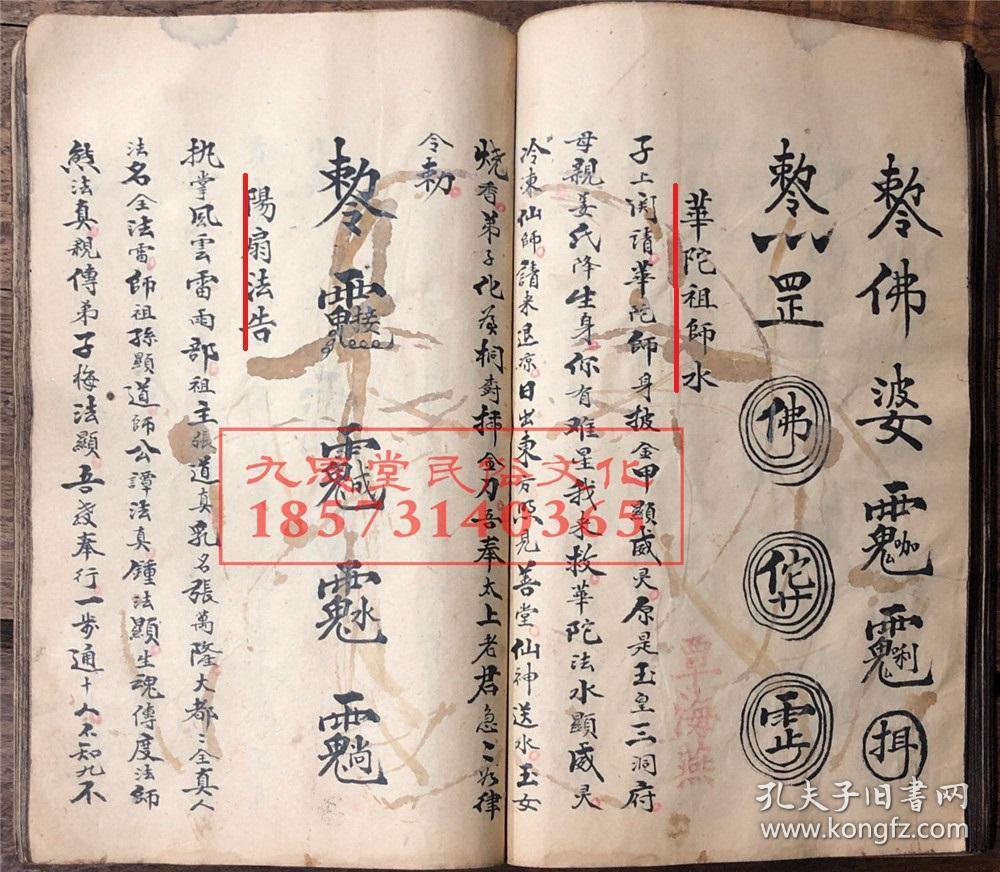 敕令佛婆
佛
敕令罡
華陀祖師水
子上関請華陀師身披金甲顯威灵原是玉皇三洞府
母親姜氏降生身你有难星我來救華陀法水顯威灵
冷凍仙師請來退凉日出東方照見善堂仙神送水玉女
燒香弟子化為桐壽拝金刀吾奉太上老君急〻如律
令勅
敕令
陽扇法告
执掌風雲雷雨部祖主張道真乳名張萬隆大都〻全真人
法名全法雷師祖孫顯道師公譚法真鍾法顯生魂傳度法師
熊法真親傳弟子梅法顯吾發奉行一步通十人不知九不
覃海燕
九思堂民俗文化
18573140365
孔夫子旧书网
www.kongfz.com